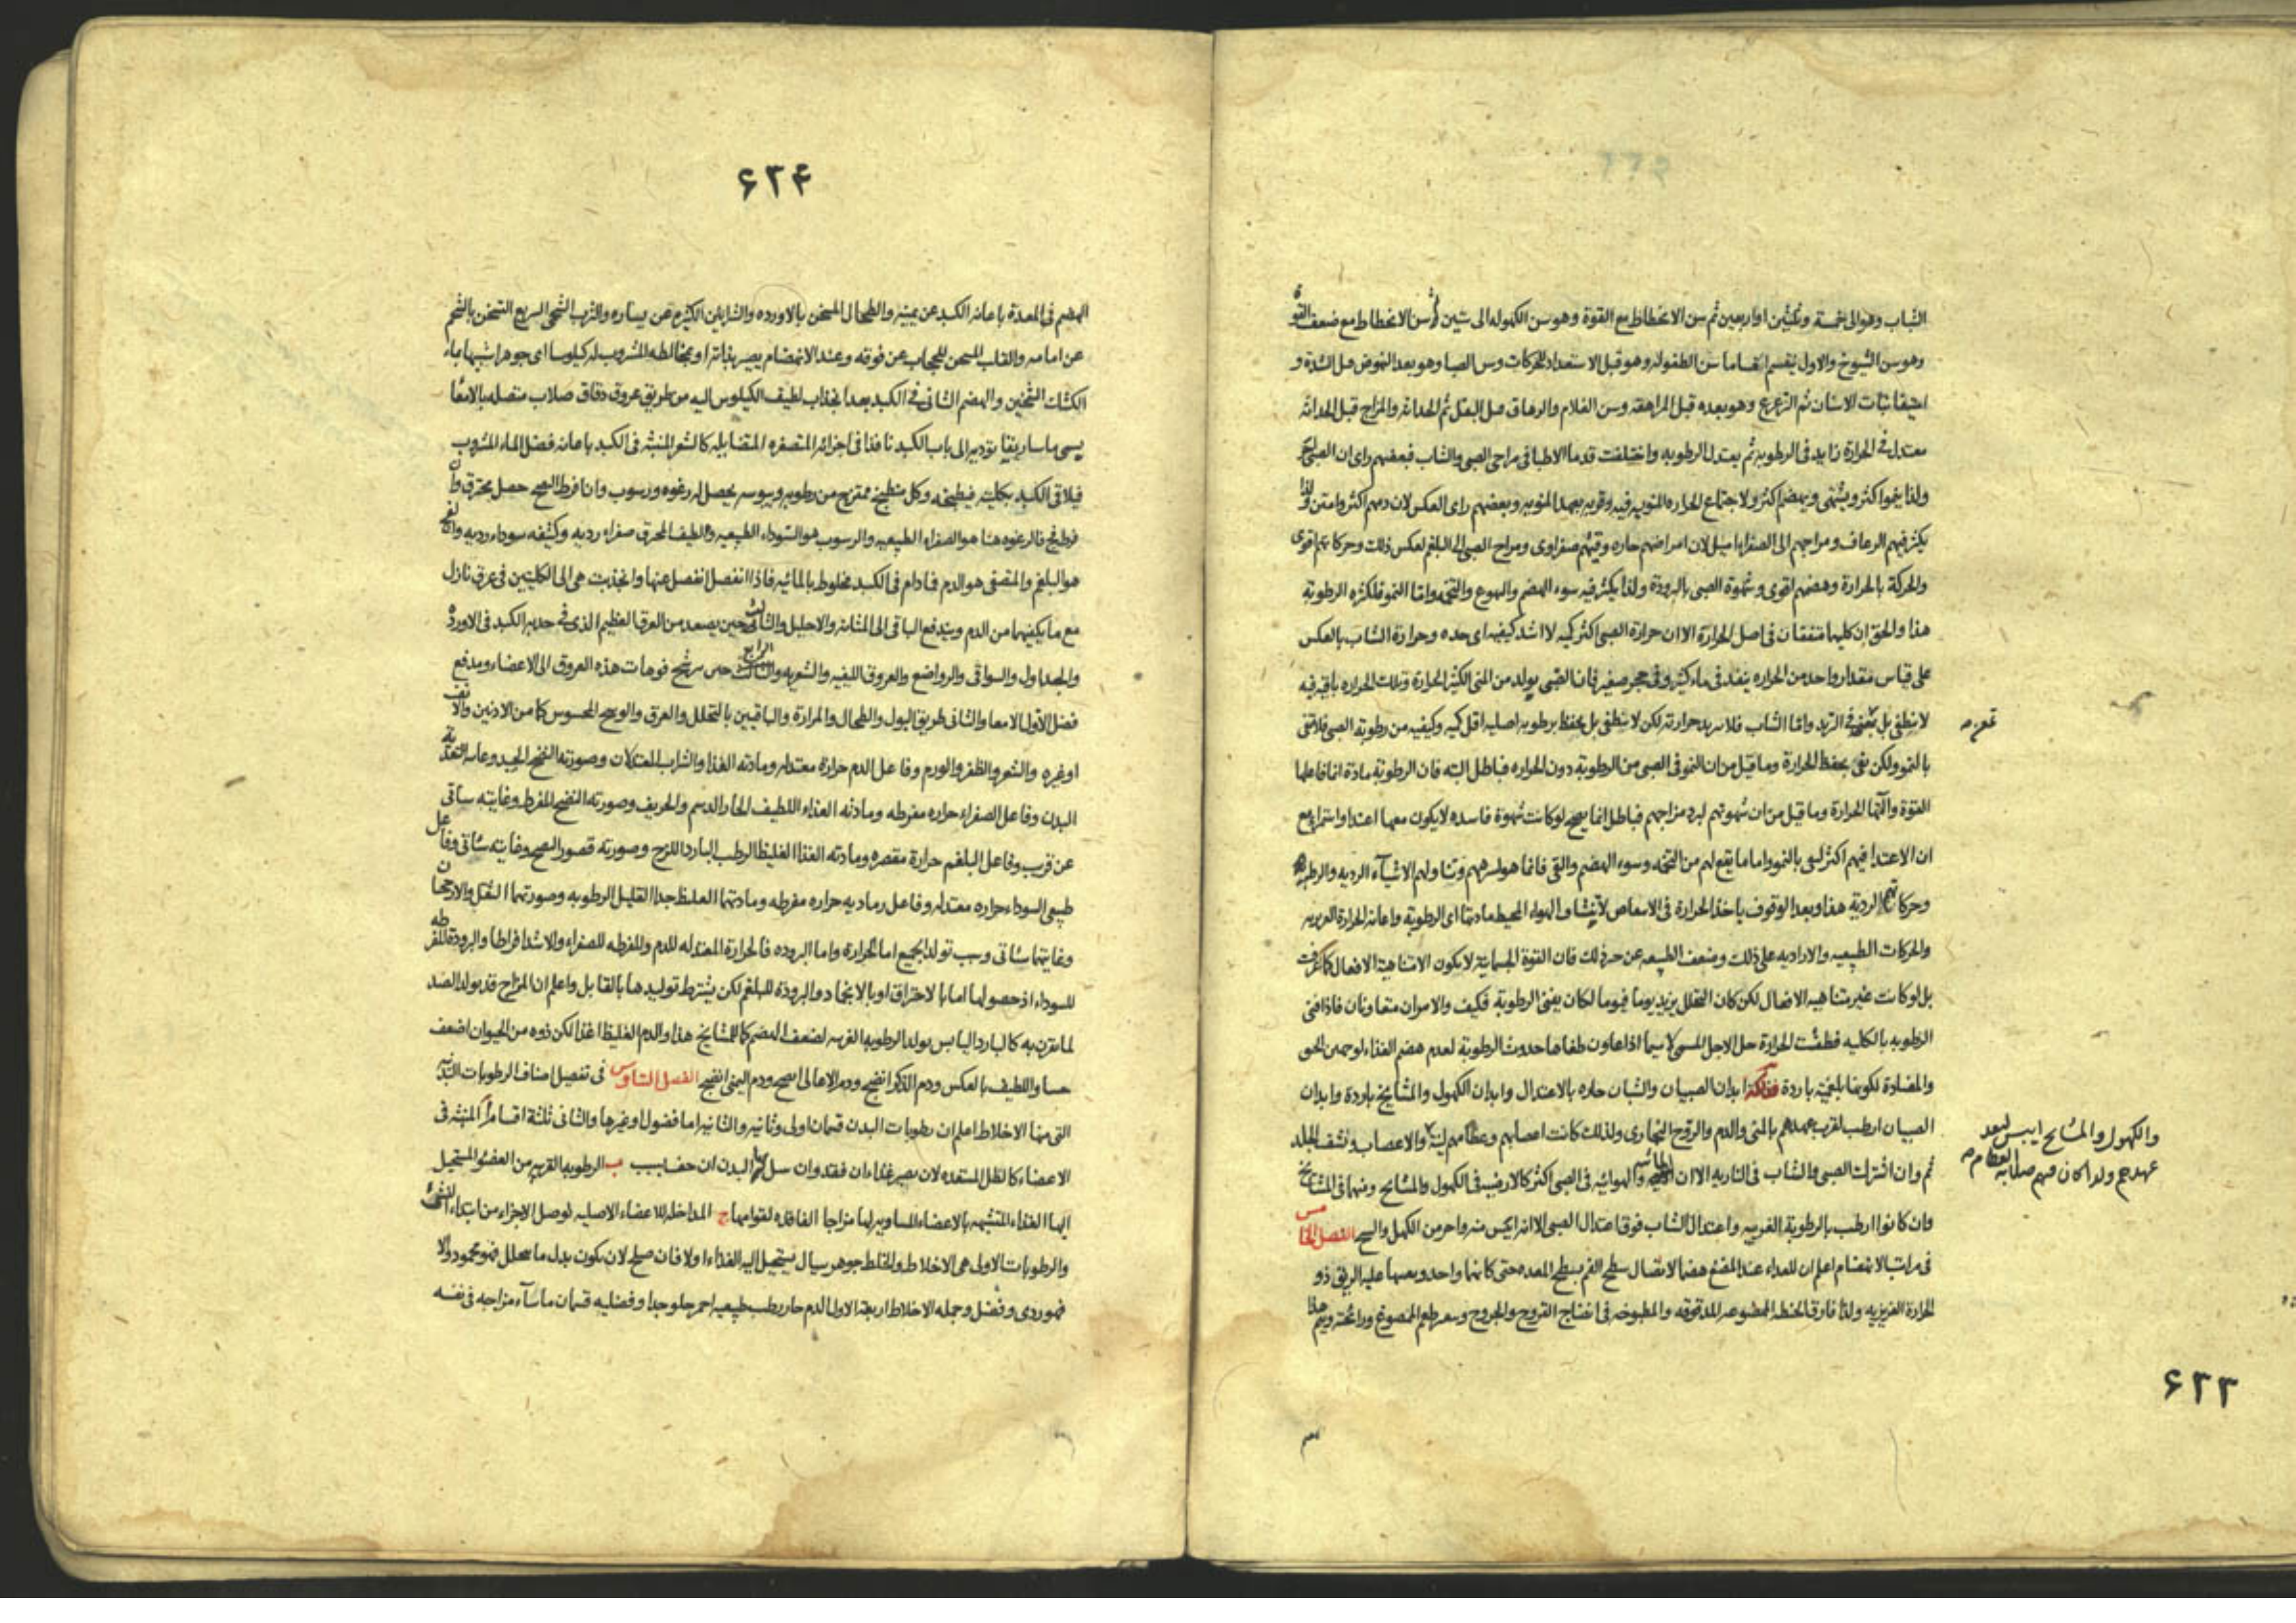 الشباب وهو الى خمسة وثلثين او اربعين ثم سن الانحطاط مع القوة وهو سن الكهولة الى ستين ثم سن الانحطاط مع ضعف القوة
وهو سن الشيوخ والاول ينقسم اقساما سن الطفوله وهو قبل الاستعداد للحركات وسن الصبا وهو بعد النهوض قبل الشدة و
نبات الاسنان ثم الترعرع وهو بعده قبل المراهقة وسن الغلام والرهاق قبل البقل ثم الحداثه والمزاج قبل الحداثه
معتدل فى الحرارة زايد فى الرطوبه ثم يعتدل الرطوبه واختلفت قدما الاطبا فى مزاجى الصبى والشاب فبعضهم راى ان الصبى
ولذا ينموا اكثر ويشتهى ويهضم اكثر ولاجتماع الحراره المنويه فيه وقربه بعهد المنويه وبعضهم راى العكس لان دمهم اكثر وامتن ولذا
يكثر فيهم الرعاف ومزاجهم الى الصفرا اميل لان امراضهم حاره وقيئهم صفراوى ومزاج الصبى الى البلغم لعكس ذلك وحركاتهم اقوى
والحركة بالحرارة وهضمهم اقوى وشهوة الصبى بالبرودة ولذا يكثر فيه سوء الهضم والتهوع والتخمه واما النمو فلكثره الرطوبة
هذا والحق ان كليهما متفقان فى اصل الحرارة الا ان حرارة الصبى اكثر كميه لا اشد كيفيه اى حده وحرارة الشاب بالعكس
على قياس مقدار واحد من الحراره ينفد فى ماء كثير وفى حجر صغير فان الصبى يولد من المنى الكثير الحرارة وتلك الحراره باقيه فيه
لا ينطفى بل فى التزيد واما الشاب فلا يزيد حرارته لكن لا ينطفى بل يحفظ برطوبه اصليه اقل كميه وكيفيه من رطوبة الصبى فلا تفى
بالنمو ولكن تفى بحفظ الحرارة وما قيل من ان النمو فى الصبى من الرطوبة دون الحراره فباطل البته فان الرطوبة مادة انما فاعلها
القوة والتها الحرارة وما قيل من ان شهوتهم لبرد مزاجهم فباطل انما يصح لو كانت شهوة فاسده لا يكون معها اغتدا واستمراء مع
ان الاغتدا فيهم اكثر ليفى بالنمو واما ما يقع لهم من التخمه وسوء الهضم والقى فانما هو لشرههم وتناولهم الاشياء الرديه والرطبه
وحركاتهم الردية هذا وبعد الوقوف ياخذ الحرارة فى الانتقاص لانتشاف الهواء المحيط مادتها اى الرطوبة واعانه الحرارة الغريزيه
والحركات الطبيعيه والاراديه على ذلك وضعف الطبيعه عن ذلك فان القوة الجسمانية لا يكون الا متناهية الافعال كما عرفت
بل لو كانت غير متناهيه الافعال لكن كان التحلل يزيد يوما فيوما لكان يفنى الرطوبة فكيف والامران متعاونان فاذا فنى
الرطوبه بالكليه فطفئت الحرارة حل الاجل المسمى لا سيما اذا عاون طفاها حدوث الرطوبة لعدم هضم الغذاء لوجهين الخنق
والمضادة لكونها بلغميه باردة ابدان الصبيان والشبان حاره بالاعتدال وابدان الكهول والمشايخ باردة وابدان
الصبيان ارطب لقرب عهدهم بالمنى والدم والروح البخارى ولذلك كانت اعصابهم وعظامهم لينة والاعصاب ونشف الجلد
ثم وان اشترك الصبى والشاب فى الناريه الا ان المائيه والهوائيه فى الصبى اكثر كالارضيه فى الكهول والمشايخ ومنها فى المشايخ
وان كانوا ارطب بالرطوبة الغريبه واعتدال الشاب فوق اعتدال الصبى الا انه ايبس منه واحر من الكهل والشيخ الفصل الخامس
فى مراتب الانهضام اعلم ان للغداء عند المضغ هضما لاتصال سطح الفم بسطح المعده حتى كانهما واحد ويعينها عليه الريق ذو
الحرارة الغريزيه ولذا فارق الحنطه الممضوغه المدقوقه والمطبوخه فى انضاج القروح والجروح وتغير طعم الممضوغ ورائحته ويتم هذا
والكهول والمشايخ ايبس لبعد
عهدهم ولذا كان فيهم صلابه العظام
۶۲۳
۶۲۴
الهضم فى المعدة باعانه الكبد عن يمينه والطحال المسخن بالاورده والشرايين الكثيره عن يساره والثرب الشحمى السريع التسخن بالشحم
عن امامه والقلب المسخن للحجاب عن فوقه وعند الانهضام يصير بذاته او بمخالطه المشروب له كيلوسا اى جوهرا شبيها بماء
الكشك الثخين والهضم الثانى فى الكبد بعد انجذاب لطيف الكيلوس اليه من طريق عروق دقاق صلاب متصله بالامعا
يسمى ماساريقا تؤديه الى باب الكبد نافذا فى اجزائه المتصغره المتضايله كالشعر المنبثه فى الكبد باعانه فضل الماء المشروب
فيلاقى الكبد بكليته فيطبخه وكل منطبخ ممتزج من رطوبه ويبوسه يحصل له رغوه ورسوب وان افرط الطبخ حصل محترق وان
فج فالرغوه هنا هو الصفراء الطبيعيه والرسوب هو السوداء الطبيعيه ولطيف المحرق صفراء رديه وكثيفه سوداء رديه والفج
هو البلغم والمتصفى هو الدم فمادام فى الكبد مخلوط بالمائيه فاذا انفصل انفصل عنها وانجذبت هى الى الكليتين فى عرق نازل
مع ما يكفيهما من الدم ويندفع الباقى الى المثانه والاحليل والثالث حين يصعد من العرق العظيم الذى فى حدبه الكبد فى الاورده
والجداول والسواقى والرواضع والعروق الليفيه والشعريه والرابع حين يرشح فوهات هذه العروق الى الاعضاء ومدفع
فضل الاول الامعا والثانى طريق البول والطحال والمرارة والباقيين بالتحلل والعرق والوسخ المحسوس كما من الاذنين والانف
او غيره والشعر والظفر والورم وفاعل الدم حرارة معتدله ومادته الغذا والشراب المعتدلان وصورته النضج الجيد وغايته التغذيه
البدن وفاعل الصفراء حراره مفرطه ومادته الغذاء اللطيف الحار الدسم والحريف وصورته النضج المفرط وغايته ستاتى
عن قرب وفاعل البلغم حرارة مقصره ومادته الغذا الغليظ الرطب البارد اللزج وصورته قصور النضج وغايته ستاتى وفاعل
طبيعى السوداء حراره معتدله وفاعل رماديه حراره مفرطه ومادتهما الغليظ جدا القليل الرطوبه وصورتهما الثفل والارجحان
وغايتهما ستاتى وسبب تولد الجميع اما الحرارة واما البروده فالحرارة المعتدله للدم والمفرطه للصفراء والاشد افراطا والبرودة المفرطه
للسوداء اذ حصولها اما بالاحتراق او بالانجماد والبرودة للبلغم لكن يشترط توليدها بالقابل واعلم ان المزاج قد يولد الضد
لما يقترن به كالبارد اليابس يولد الرطوبه الغريبه لضعف الهضم كما للمشايخ هذا والدم الغليظ اغذا لكن ذوه من الحيوان اضعف
حسا واللطيف بالعكس ودم الذكر انضج ودم الاعالى انضج ودم اليمنى انضج الفصل السادس فى تفصيل اصناف الرطوبات البدنيه
التى منها الاخلاط اعلم ان رطوبات البدن قسمان اولى وثانيه والثانيه اما فضول او غيرها والثانى ثلثة اقسام أ المنبثه فى
الاعضاء كالطل المستعده لان يصير غذاء ان فقد وان يبل البدن ان جف بسبب ب الرطوبه القريبه من العضو المستحيل
اليها الغذاء المتشبهه بالاعضاء المساويه لها مزاجا الفاقده لقوامها ج المداخله للاعضاء الاصليه لوصل الاجزاء من ابتداء النشو
والرطوبات الاولى هى الاخلاط والخلط جوهر سيال يستحيل اليه الغذاء اولا فان صلح لان يكون بدل ما يتحلل فهو محمود والا
فهو ردى وفضل وجمله الاخلاط اربعة الاول الدم حار رطب طبيعيه احمر حلو جدا وفضليه قسمان ما ساء مزاجه فى نفسه